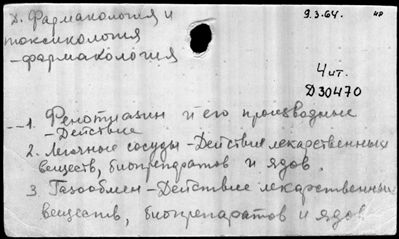 Д. Фармакология и
токсикология
-фармакология
9.3.64.
Чит.
Д30470
1. Фенотиазин и его производные
-Действие
2. Легочные сосуды - Действие лекарственных
веществ, биопрепаратов и ядов.
3. Газообмен - Действие лекарственных
веществ, биопрепаратов и ядов